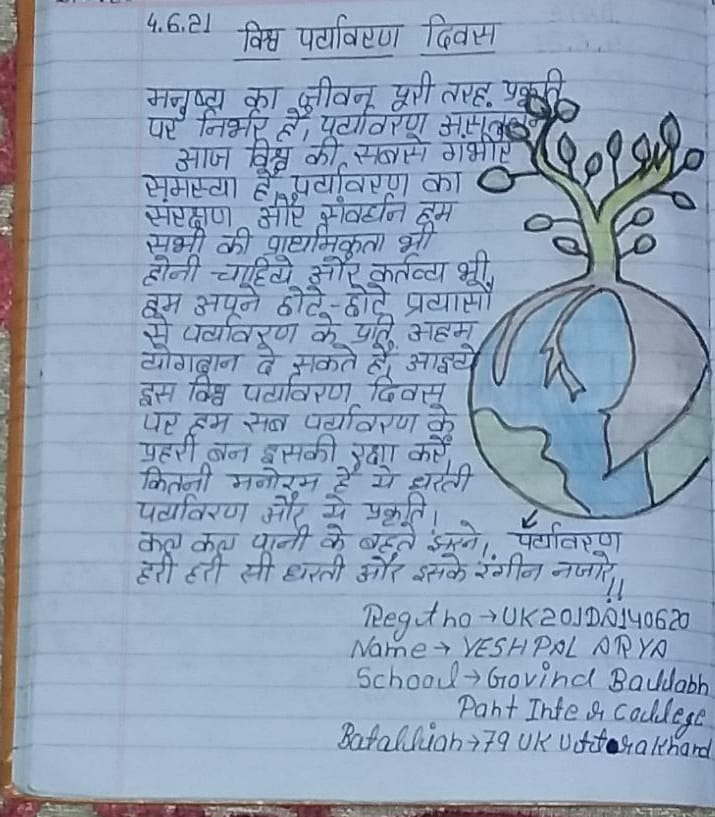 4.6.21
विश्व पर्यावरण दिवस
मनुष्य का जीवन पूरी तरह प्रकृति
पर निर्भर है, पर्यावरण असंतुलन
आज विश्व की सबसे गंभीर
समस्या है, पर्यावरण का
संरक्षण और संवर्धन हम
सभी की प्राथमिकता भी
होनी चाहिये और कर्तव्य भी,
हम अपने छोटे-छोटे प्रयासों
से पर्यावरण के प्रति अहम
योगदान दे सकते हैं, आइये
इस विश्व पर्यावरण दिवस
पर हम सब पर्यावरण के
प्रहरी बन इसकी रक्षा करें,
कितनी मनोरम है ये धरती
पर्यावरण और ये प्रकृति।
कल कल पानी के बहते झरने, पर्यावरण
हरी हरी सी धरती और इसके रंगीन नजारे,!!
Regt no → UK20JDA140620
Name → YESHPAL ARYA
School → Govind Ballabh
Pant Inter College
Batallian → 79 UK Uttarakhand